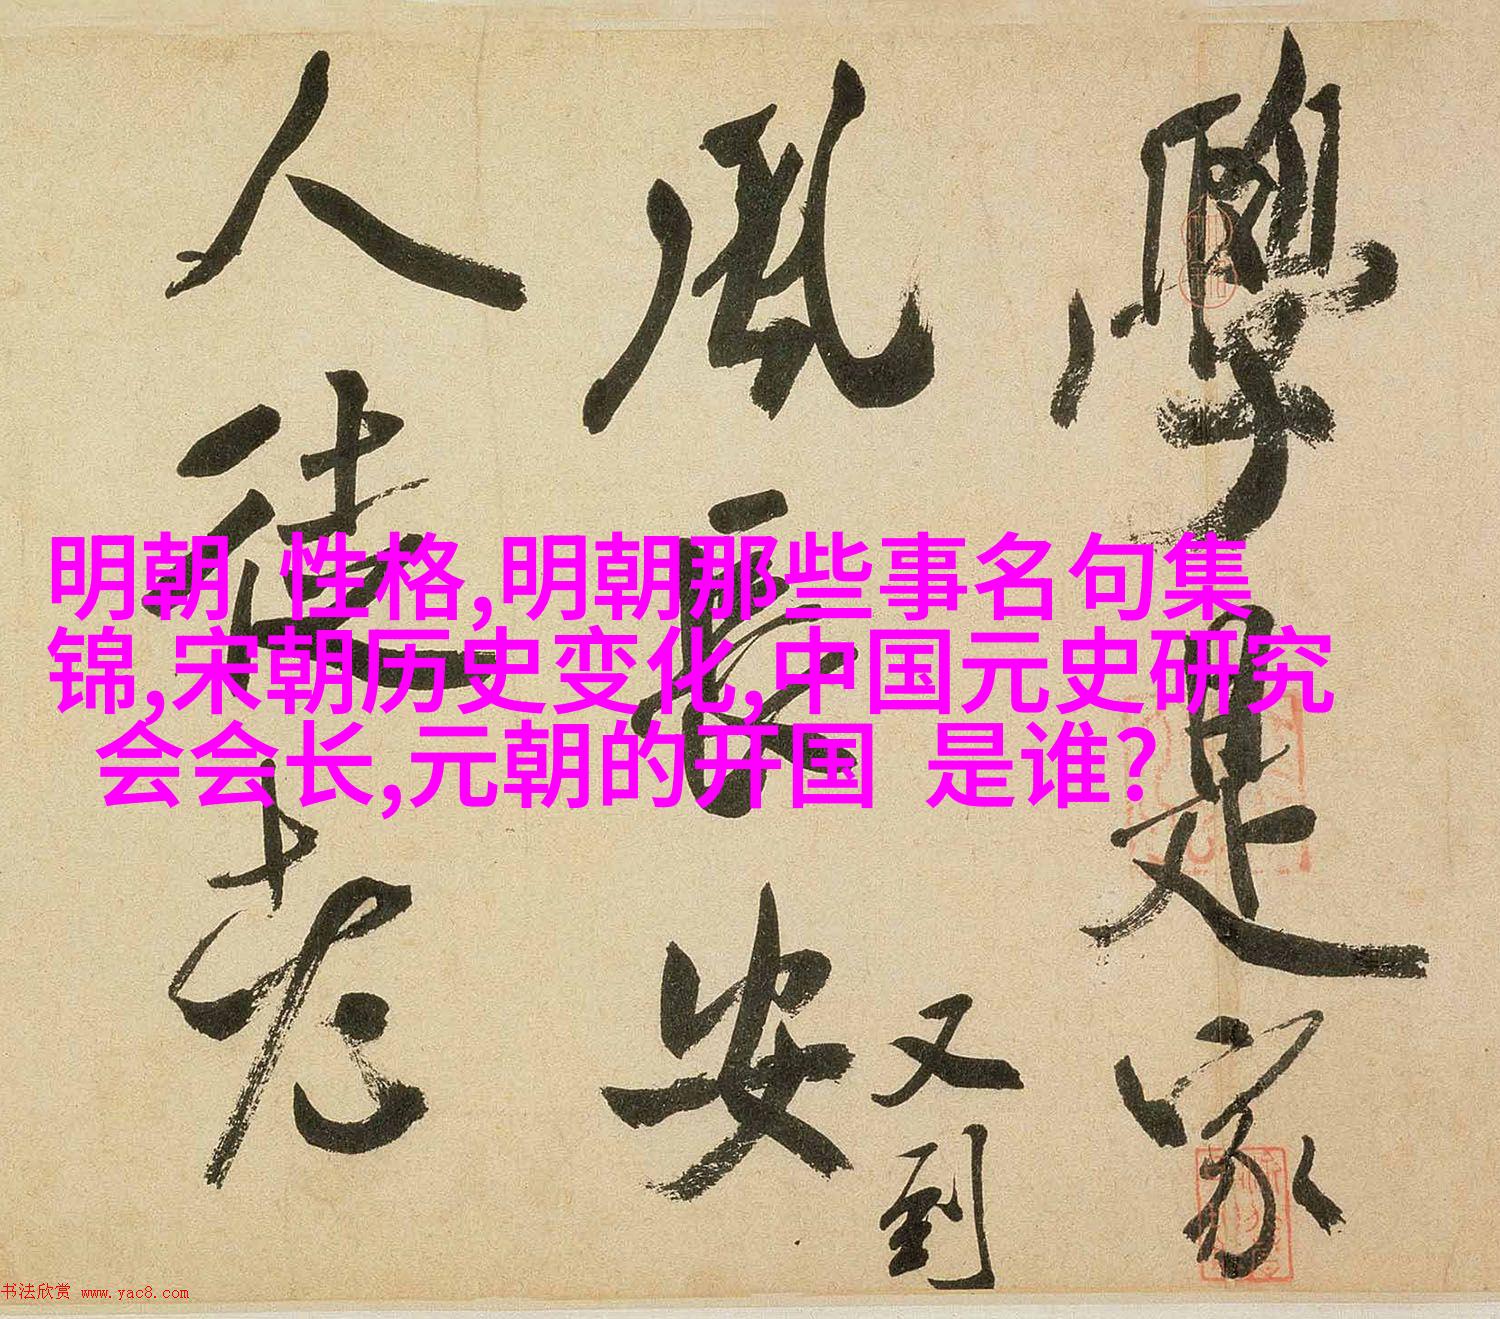 學是家
風長安
又到
人徒老
明朝 性格,明朝那些事名句集
锦,宋朝历史变化,中国元史研究
会会长,元朝的开国 是谁?
书法欣赏 www.yac8.com